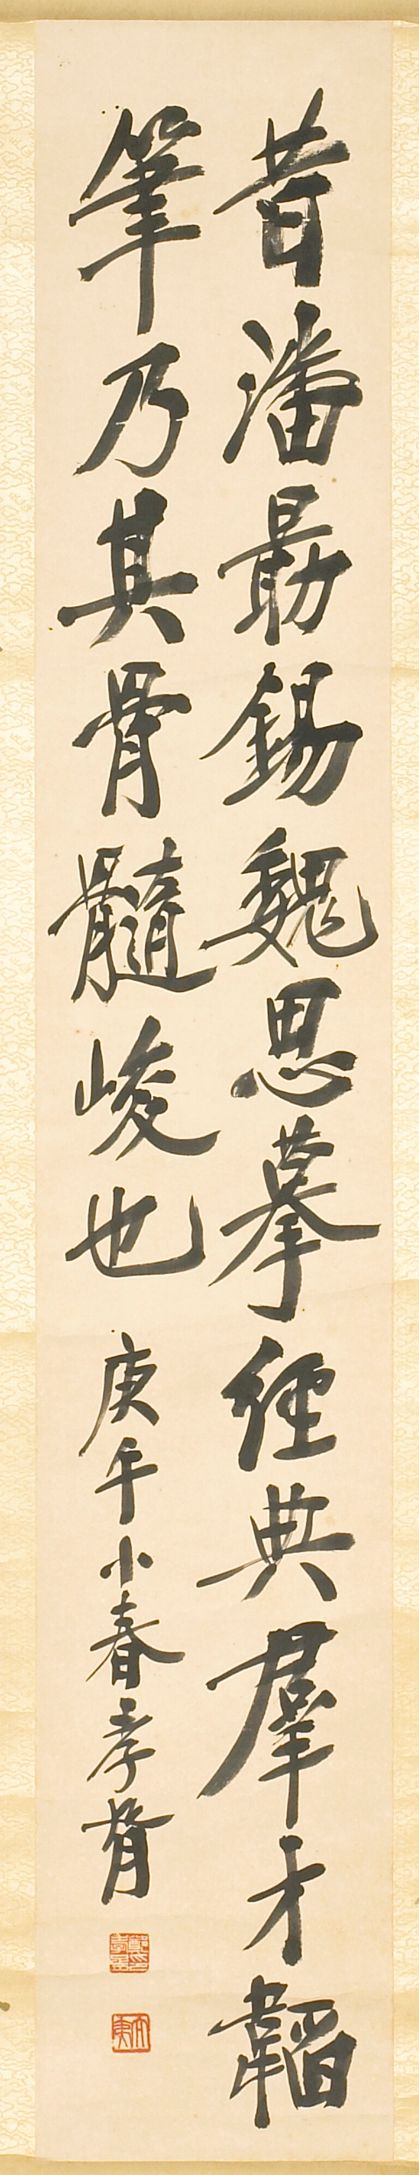 昔潘勗錫魏思摹經典羣才韜
筆乃其骨髓峻也
庚午小春孝胥